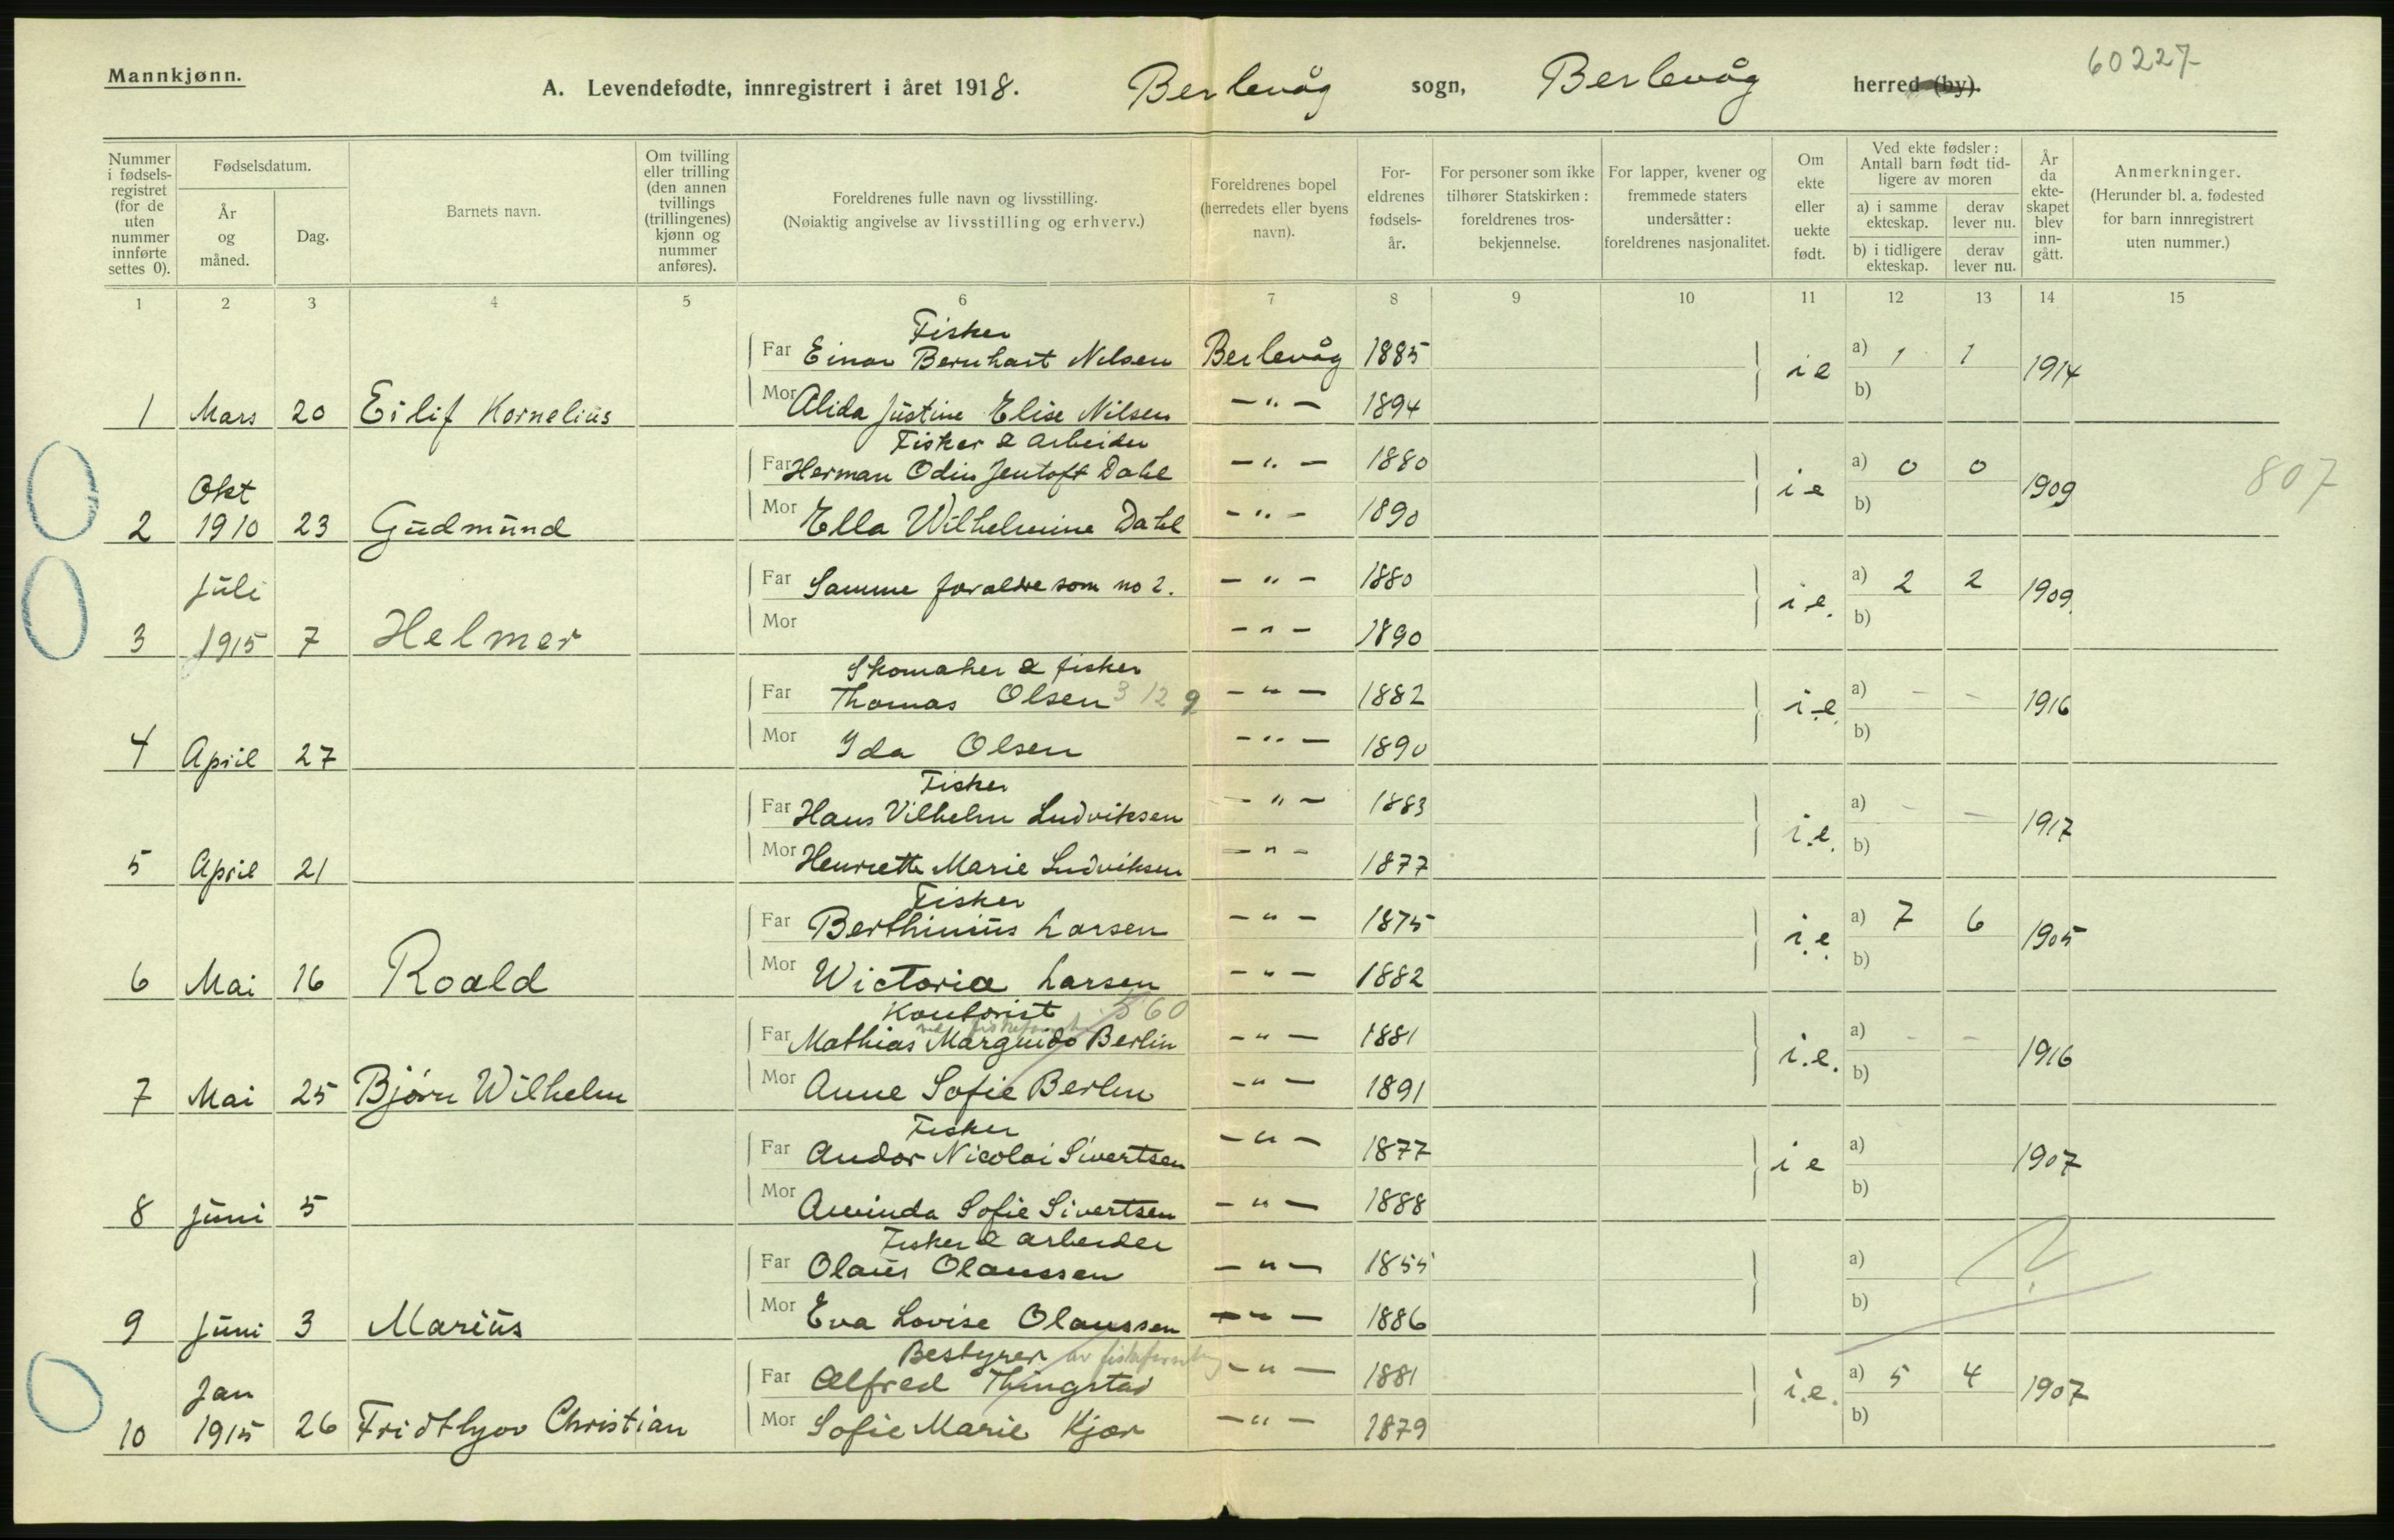 Mannkjønn.
A. Levendefødte, innregistrert i året 1918. Berlevåg sogn, Berlevåg herred (by).
60227
Nummer i fødsels-registret (for de uten nummer innførte settes 0).
Fødselsdatum.
År og måned.
Dag.
Barnets navn.
Om tvilling eller trilling (den annen tvillings (trillingenes) kjønn og nummer anføres).
Foreldrenes fulle navn og livsstilling.
(Nøiaktig angivelse av livsstilling og erhverv.)
Foreldrenes bopel (herredets eller byens navn).
For-eldrenes fødsels-år.
For personer som ikke tilhører Statskirken: foreldrenes tros-bekjennelse.
For lapper, kvener og fremmede staters undersåtter: foreldrenes nasjonalitet.
Om ekte eller uekte født.
Ved ekte fødsler: Antall barn født tid-ligere av moren
a) i samme ekteskap.
derav lever nu.
b) i tidligere ekteskap.
derav lever nu.
År da ekte-skapet blev inn-gått.
Anmerkninger.
(Herunder bl. a. fødested for barn innregistrert uten nummer.)
1 2 3 4 5 6 7 8 9 10 11 12 13 14 15
Fisker
Far Einar Bernhart Nilsen Berlevåg 1885 i e a) 1 1 1914
1 Mars 20 Eilif Kornelius Mor Alida Justine Elise Nilsen - " - 1894 b)
Fisker & arbeider
Far Herman Odin Jentoft Dahl - " - 1880 i e a) 0 0 1909 807
Okt
2 1910 23 Gudmund Mor Ella Wilhelmine Dahl - " - 1890 b)
Far Samme foraldre som no 2. - " - 1880 i.e. a) 2 2 1909
Juli
3 1915 7 Helmer Mor - " - 1890 b)
Skomaker & fisker
Far Thomas Olsen 3 12 9 - " - 1882 i.e. a) - - 1916
4 April 27 Mor Ida Olsen - " - 1890 b)
Fisker
Far Hans Vilhelm Ludviksen - " - 1883 i.e. a) - - 1917
5 April 21 Mor Henriette Marie Ludviksen - " - 1877 b)
Fisker
Far Berthinius Larsen - " - 1875 i.e. a) 7 6 1905
6 Mai 16 Roald Mor Wictoria Larsen - " - 1882 b)
Kontorist 560
Far Mathias Marguido Berlin - " - 1881 i.e. a) - - 1916
7 Mai 25 Bjørn Wilhelm Mor Anne Sofie Berlin - " - 1891 b)
Fisker
Far Andor Nicolai Sivertsen - " - 1877 i e a) 1907
8 Juni 5 Mor Sofie Sivertsen - " - 1888 b)
Fisker & arbeider
Far Olaus Olaussen - " - 1855 a) ?
9 Juni 3 Marius Mor Eva Lovise Olaussen - " - 1886 b)
Bestyrer av
Far Alfred Thingstad - " - 1881 i.e. a) 5 4 1907
Jan
10 1915 26 Fridthjov Christian Mor Sofie Marie Kjær - " - 1879 b)